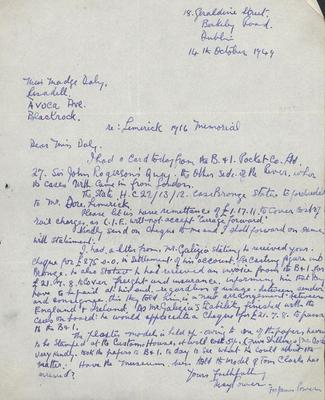 18. Geraldine Street,
Berkeley Road,
Dublin
14th October 1949
Miss Madge Daly,
Avoca Ave.
Blackrock.
re: Limerick 1916 Memorial
Dear Miss Daly,
I had a Card today from the B+I. Packet Co. Ltd.
27. Sir John Rogerson's Quay. the other side of the River, where
is cases with came in from London.
The State H.C.22/13/12. Case Bronze Statue to forwarded
to Mr. Dore Limerick
Please let us have remittance of £1.17.11 to cover cost of
rail charges, as C.I.E. will not accept "carriage forward".
Kindly send on cheque to me and I shall forward on same
with statement.
I had a letter from Mr. Galizia stating he received your
cheque for £275.0.0. in settlement of his account for casting figure in
Bronze. he also states he has received an invoice from the B+I. for
£21.7.8 to cover freight and insurance, informing him that this
have to be paid at his end, regardless of usage. between sender
and consignee. this they told him is a new arrangement between
England + Ireland. As Mr Galizia's trouble finished with the
case on board he would appreciate a cheque for £21.7.8. to pass on
to the B+I.
The plaster model is held up - owing to one of the papers, have
to be stamped at the Customs House, it will cost 5/= (Five Shillings)
very kindly took the papers to B+I. today to see what he could about the
matter. Have the Museum been told the model of Tom Clarke has
arrived?
Yours faithfully,
May Power